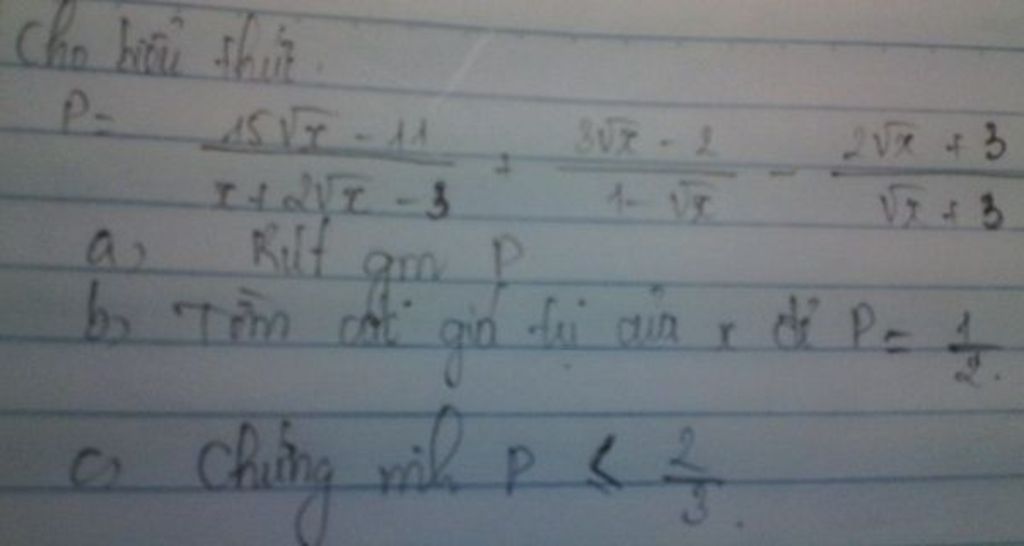 Cho biểu thức.
P = \frac{15\sqrt{x} - 11}{x + 2\sqrt{x} - 3} + \frac{3\sqrt{x} - 2}{1 - \sqrt{x}} - \frac{2\sqrt{x} + 3}{\sqrt{x} + 3}
a, Rút gọn P
b, Tìm các giá trị của x để P = \frac{1}{2}.
c, Chứng minh P ≤ \frac{2}{3}.